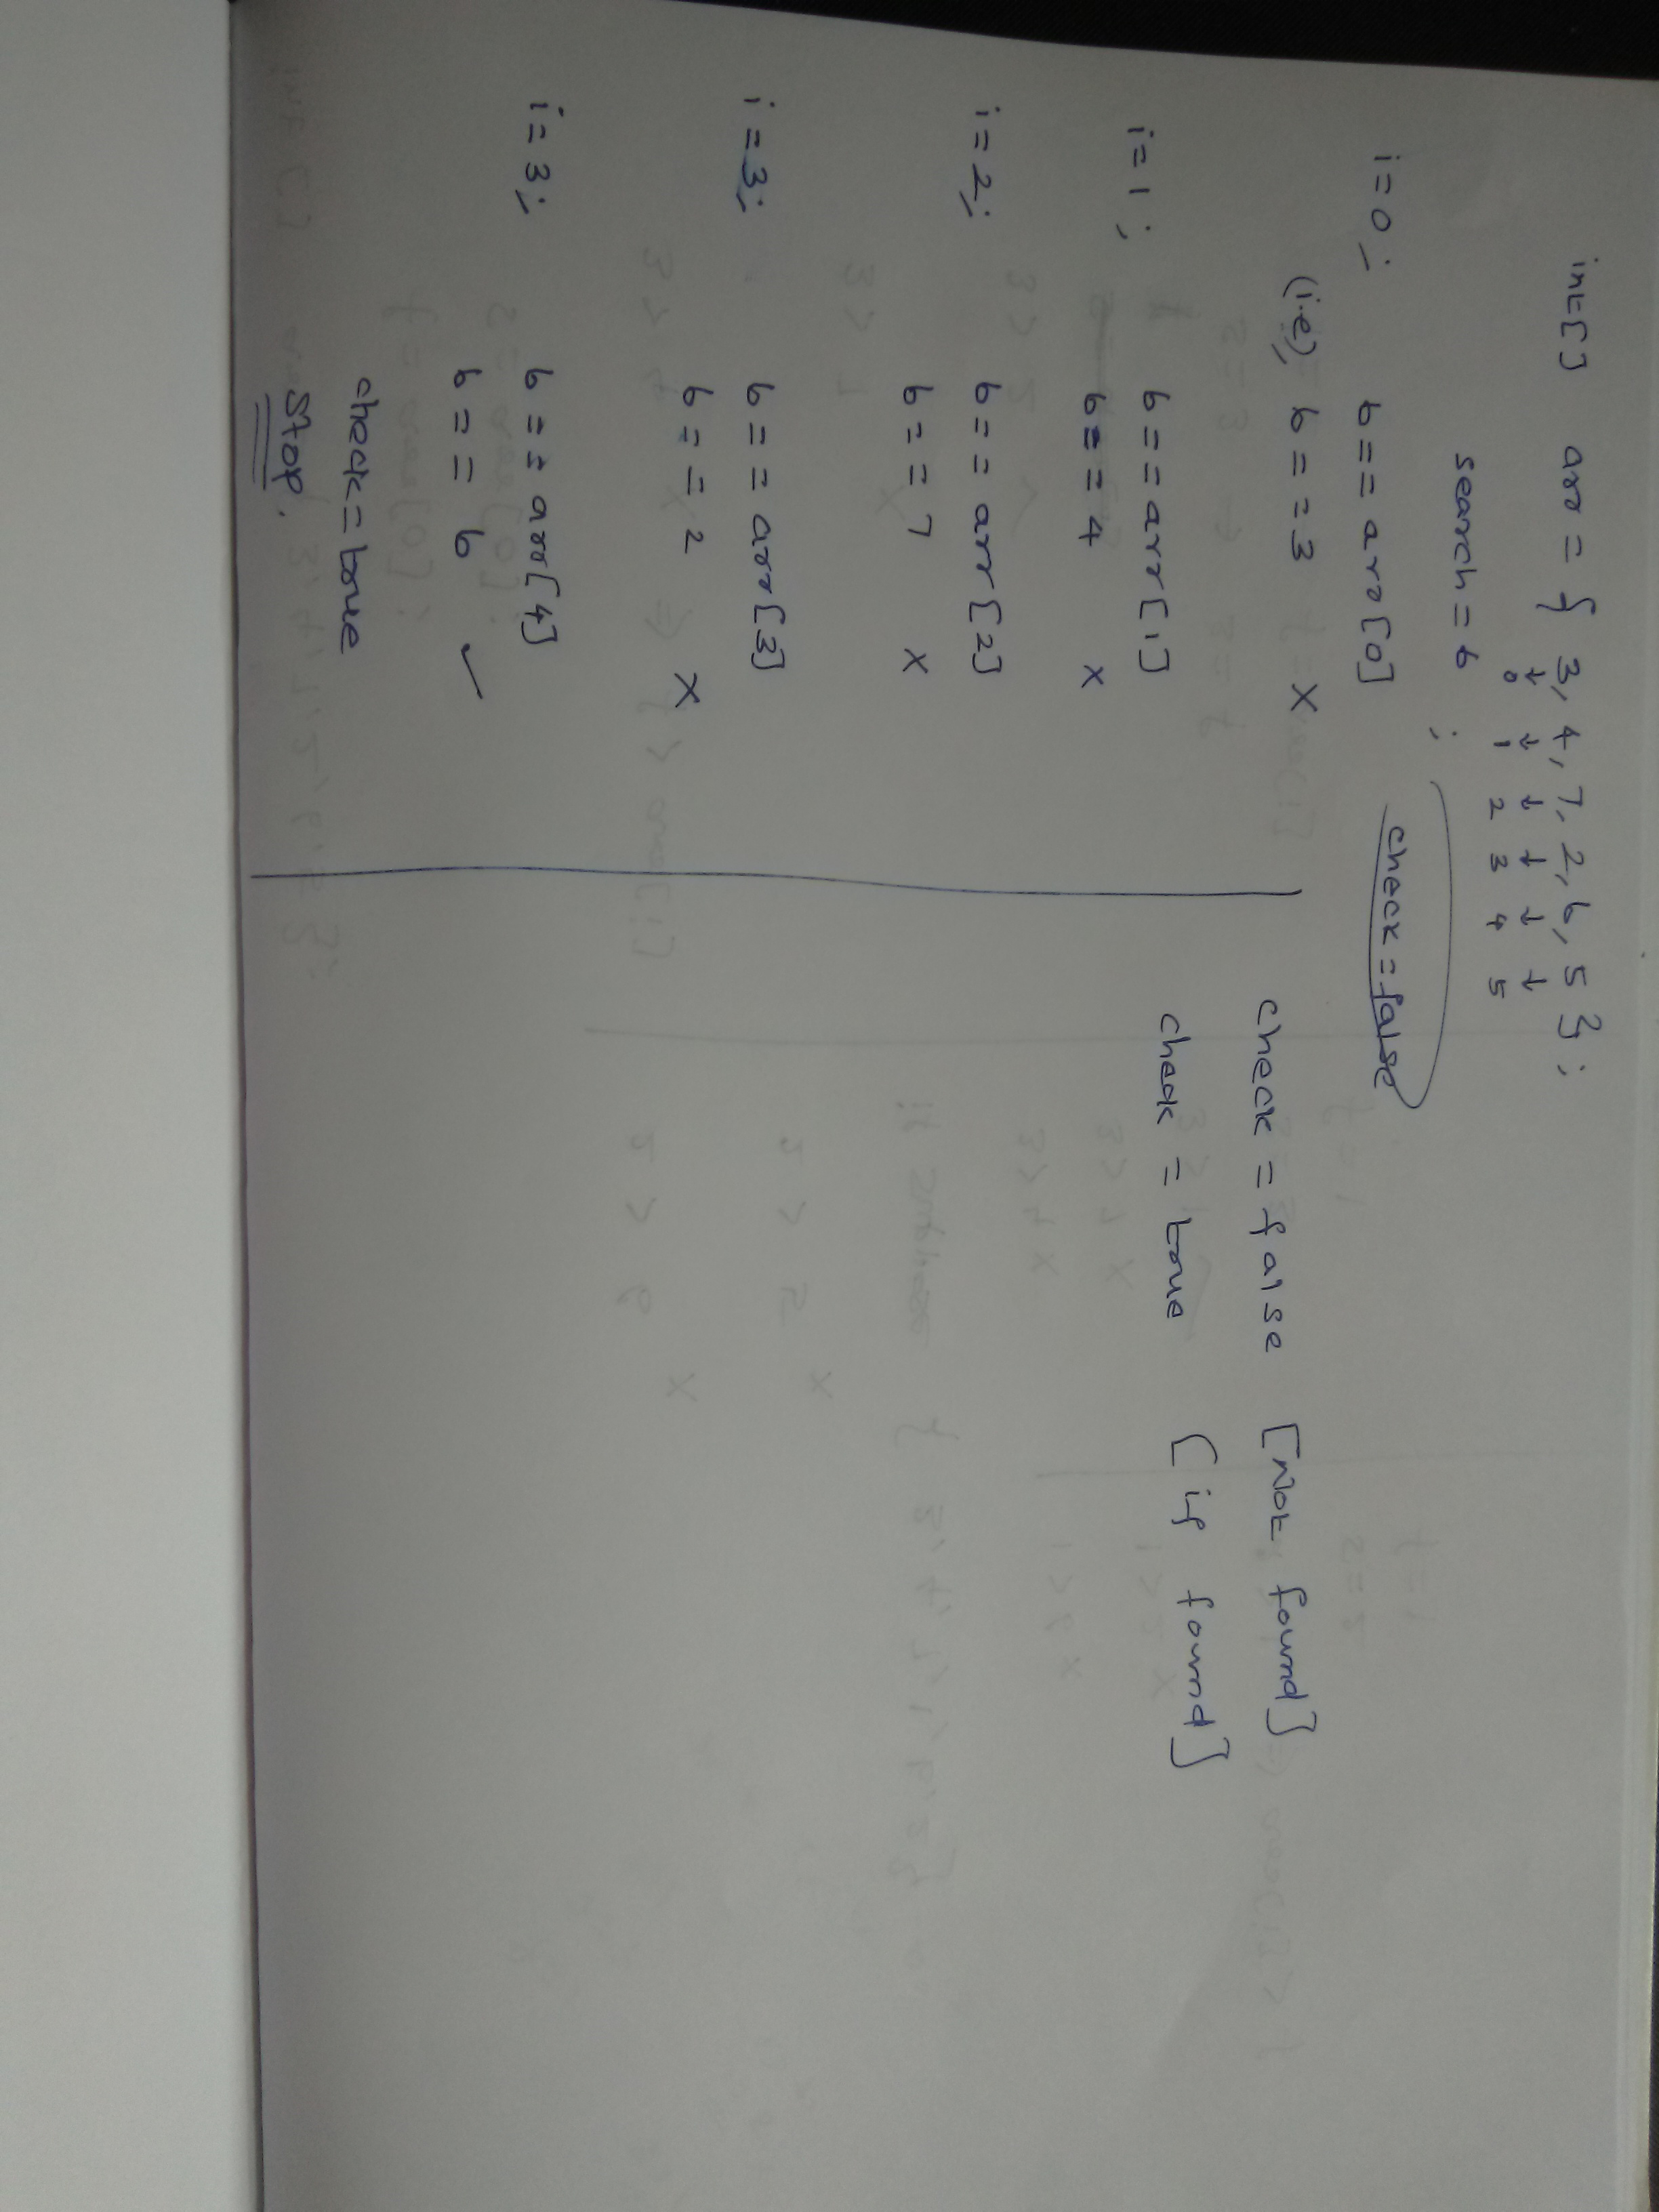 int[] arr = { 3, 4, 7, 2, 6, 5 };
↓ ↓ ↓ ↓ ↓ ↓
0 1 2 3 4 5
search = 6 ;
check = false
i = 0 ; 6 == arr[0]
(i.e), 6 == 3 X
i = 1 ; 6 == arr[1]
6 == 4 X
i = 2; 6 == arr[2]
6 == 7 X
i = 3; 6 == arr[3]
6 == 2 X
i = 3; 6 == arr[4]
6 == 6 ✓
check = true
Stop.
check = false [Not found]
check = true [if found]